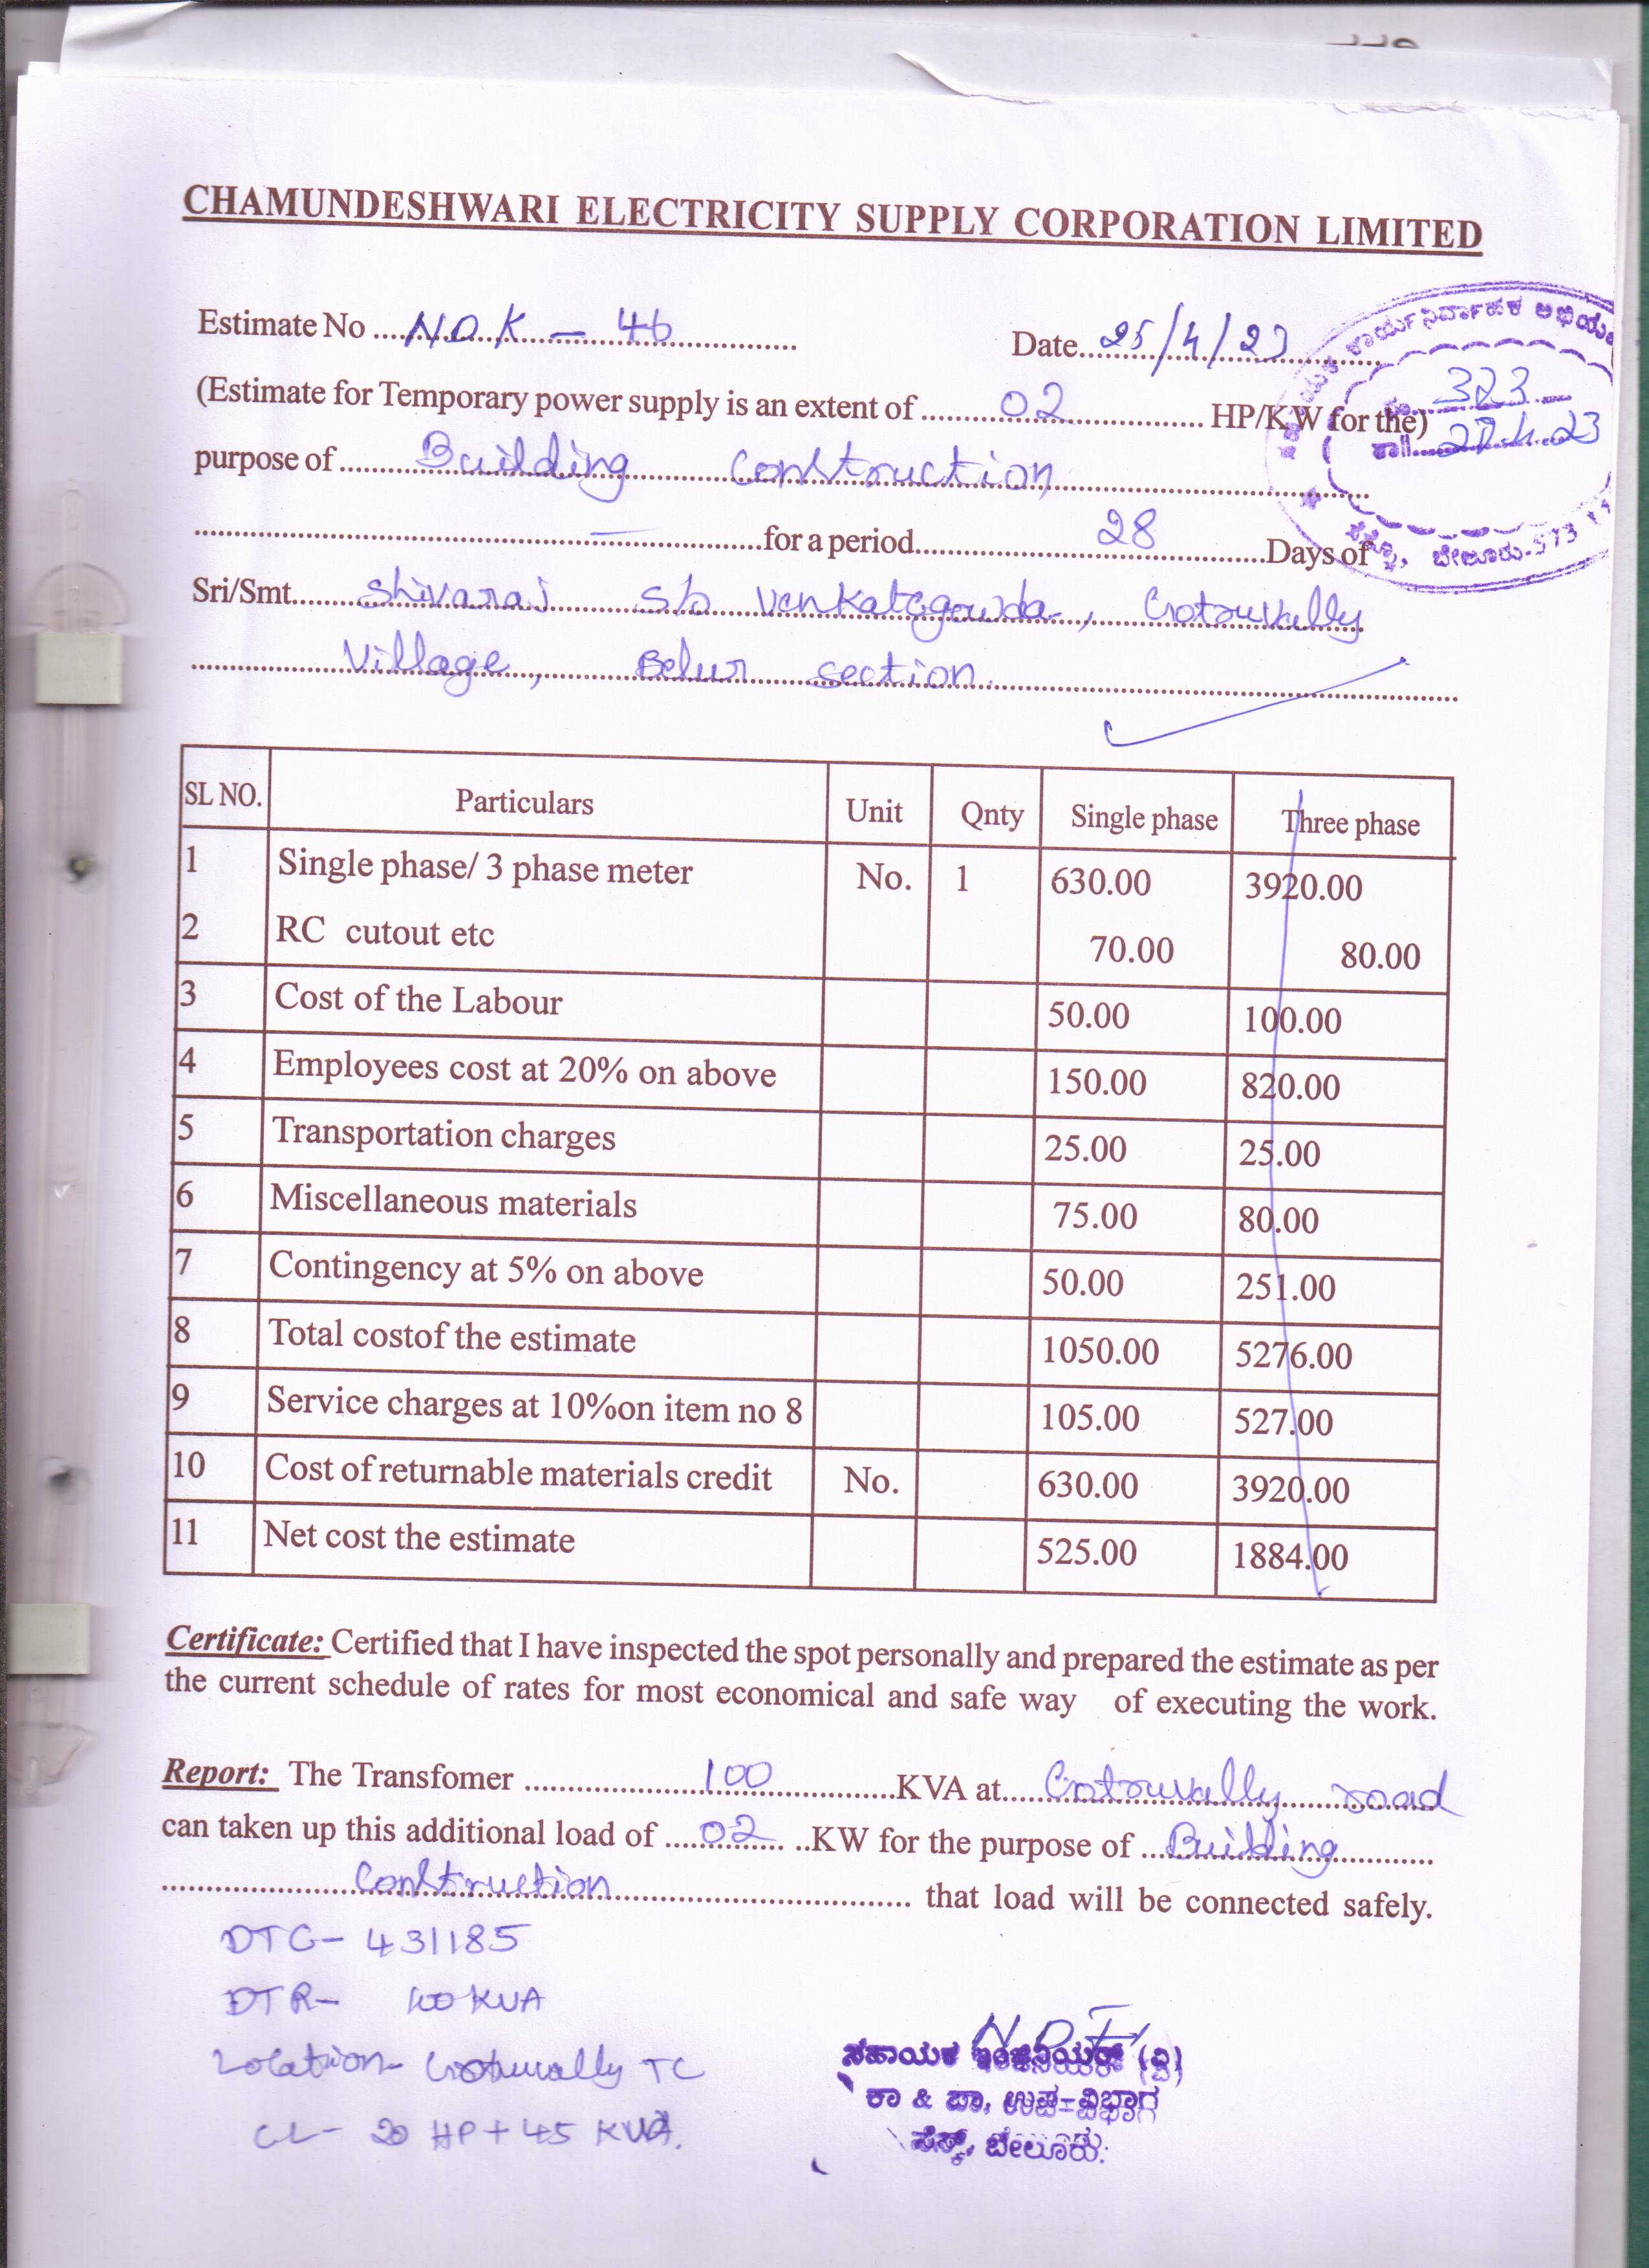 CHAMUNDESHWARI ELECTRICITY SUPPLY CORPORATION LIMITED
Estimate No ....N.O.K – 46 Date...25/4/23
ಕಾರ್ಯನಿರ್ವಾಹಕ
323
27.4.23
ಬೇಲೂರು-573
(Estimate for Temporary power supply is an extent of ..........02.......... HP/KW for the)
purpose of ........ Building Construction
.......... – ..........for a period.......... 28 ..........Days of
Sri/Smt...... Shivaraj S/o Venkategowda,
Village, Belur section.
SL NO. Particulars Unit Qnty Single phase Three phase
1 Single phase/ 3 phase meter No. 1 630.00 3920.00
2 RC cutout etc 70.00 80.00
3 Cost of the Labour 50.00 100.00
4 Employees cost at 20% on above 150.00 820.00
5 Transportation charges 25.00 25.00
6 Miscellaneous materials 75.00 80.00
7 Contingency at 5% on above 50.00 251.00
8 Total costof the estimate 1050.00 5276.00
9 Service charges at 10%on item no 8 105.00 527.00
10 Cost of returnable materials credit No. 630.00 3920.00
11 Net cost the estimate 525.00 1884.00
Certificate: Certified that I have inspected the spot personally and prepared the estimate as per
the current schedule of rates for most economical and safe way of executing the work.
Report: The Transfomer .......... 100 ..........KVA at..... road
can taken up this additional load of .....02..... ..KW for the purpose of ...Building..........
.......... Construction .......... that load will be connected safely.
DTC- 431185
DTR- 100 KVA
Location- TC
CL- 20 HP + 45 KVA.
ಸಹಾಯಕ ಇಂಜಿನಿಯರ್ (ವಿ)
ಕಾ & ಪಾ, ಉಪ-ವಿಭಾಗ
ಸೆಸ್ಕ್, ಬೇಲೂರು.